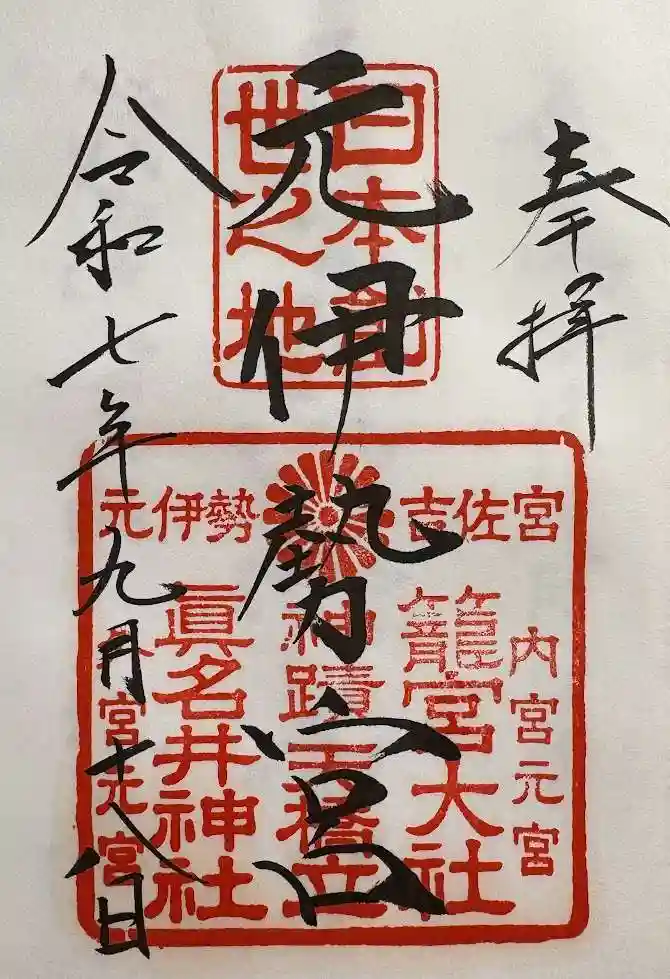 奉拝
日本創
世之地
元伊勢宮
吉佐宮
元伊勢
内宮元宮
籠宮大社
神蹟天橋立
眞名井神社
外宮元宮
令和七年九月十八日